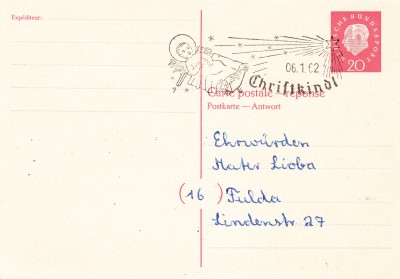 Expéditeur:
DEUTSCHE BUNDESPOST
20
06.1.62
Christkindl
Carte postale — réponse
Postkarte — Antwort
Ehrwürden
Mater Lioba
(16) Fulda
Lindenstr 27